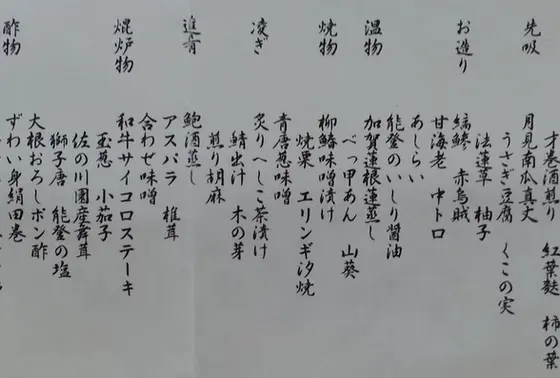 先吸
才巻酒煎り 紅葉麩 柿の葉
月見南瓜真丈
うさぎ豆腐 くこの実
法蓮草 柚子
お造り
縞鯵 赤烏賊
甘海老 中トロ
あしらい
能登のいしり醤油
温物
加賀蓮根蓮蒸し
べっ甲あん 山葵
焼物
柳鰆味噌漬け
焼栗 エリンギ汐焼
青唐葱味噌
凌ぎ
炙りへしこ茶漬け
鯖出汁 木の芽
煎り胡麻
進肴
鮑酒蒸し
アスパラ 椎茸
合わせ味噌
焜炉物
和牛サイコロステーキ
玉葱 小茄子
佐の川園産舞茸
獅子唐 能登の塩
大根おろしポン酢
酢物
ずわい身絹田巻